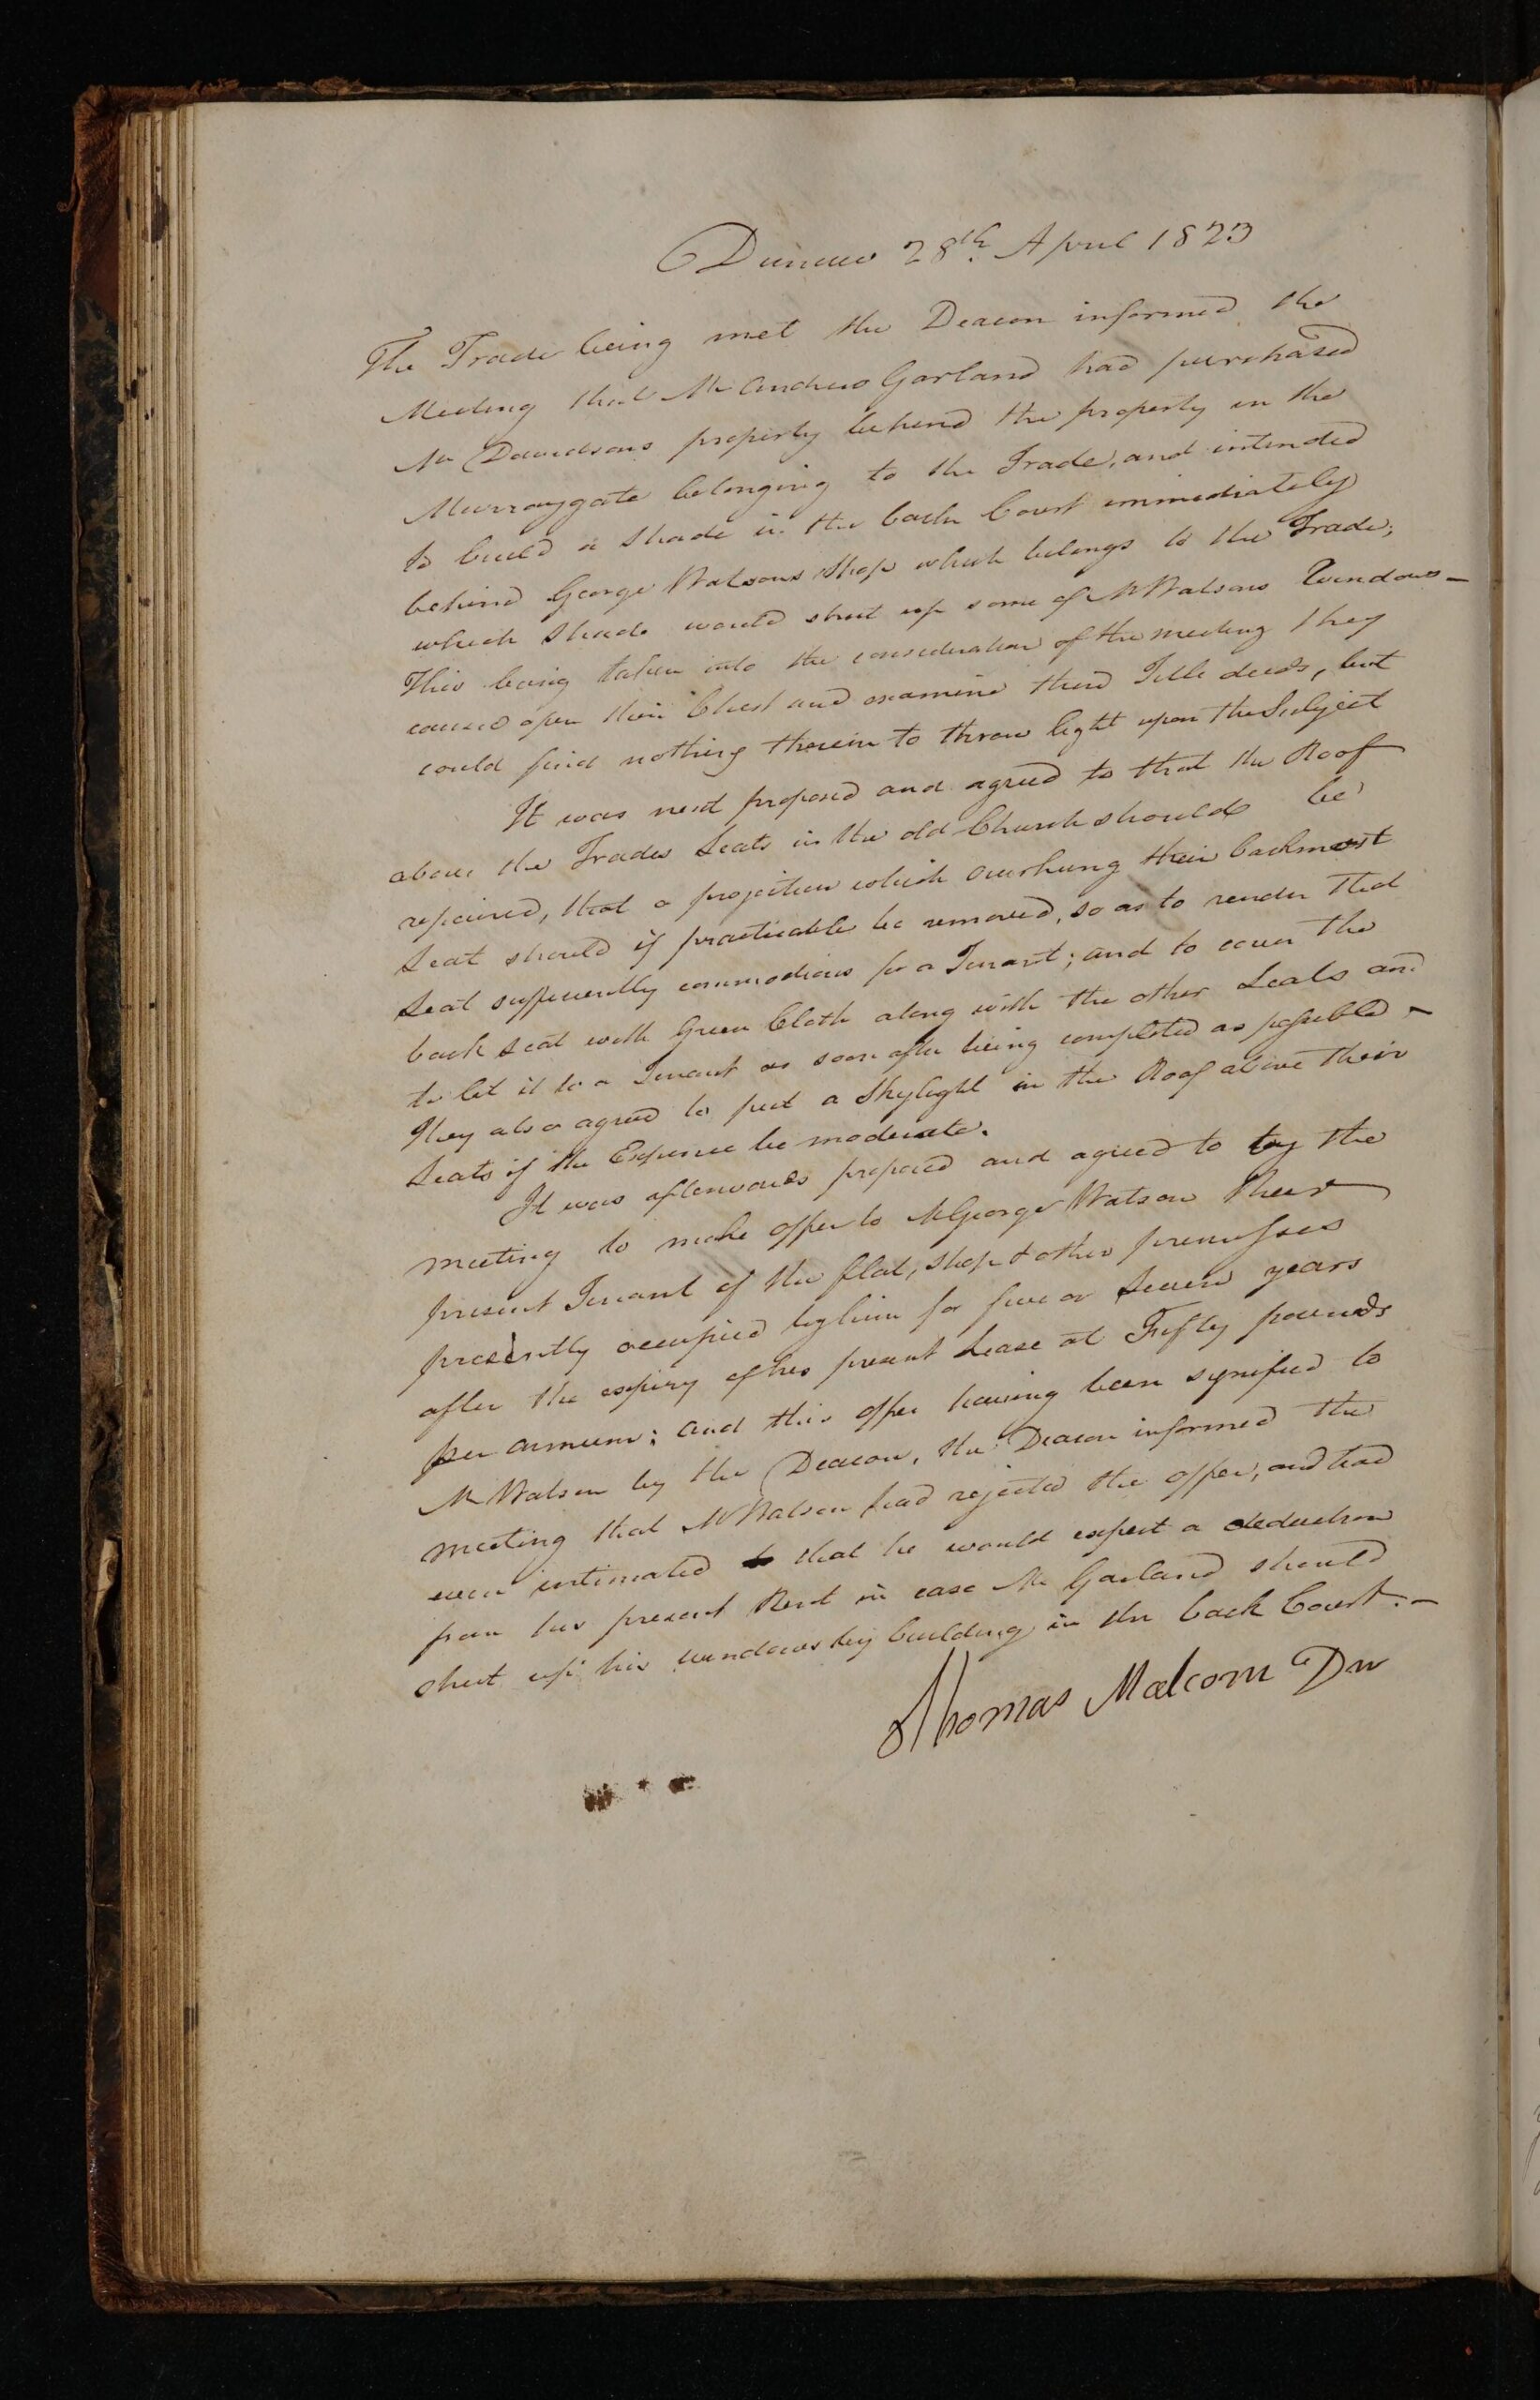 Dundee 28th April 1823
The Trade being met the Deacon informed the
Meeting that Mr Andrew Garland had purchased
Mr Davidsons property behind the property in the
Murraygate belonging to the Trade, and intended
to build a Shade in the back Court immediately
behind George Watsons Shop which belongs to the Trade;
which Shade would shut up some of Mr Watsons Windows —
This being taken into the consideration of the meeting they
caused open their Chest and examine their Title deeds, but
could find nothing therein to throw light upon the Subject
It was next proposed and agreed to that the Roof
above the Trades Seats in the old Church should be
repaired, that a projection which overhung their backmost
Seat should if practicable be removed, so as to render that
Seat sufficiently commodious for a Tenant; and to cover the
back seat with Green Cloth along with the other Seats and
to let it to a Tenant as soon after being completed as possible —
They also agreed to put a Skylight in the Roof above their
Seats if the Expence be moderate.
It was afterwards proposed and agreed to by the
meeting to make offer to Mr George Watson their
present Tenant of the flat, shop & other premisses
presently occupied by him for five or Seven years
after the expiry of his present Lease at Fifty pounds
per annum; and this offer having been signified to
Mr Watson by the Deacon, the Deacon informed the
meeting that Mr Watson had rejected the offer, and had
even intimated that he would expect a deduction
from his present Rent in case Mr Garland should
shut up his windows by building in the back Court. —
Thomas Malcom Dn